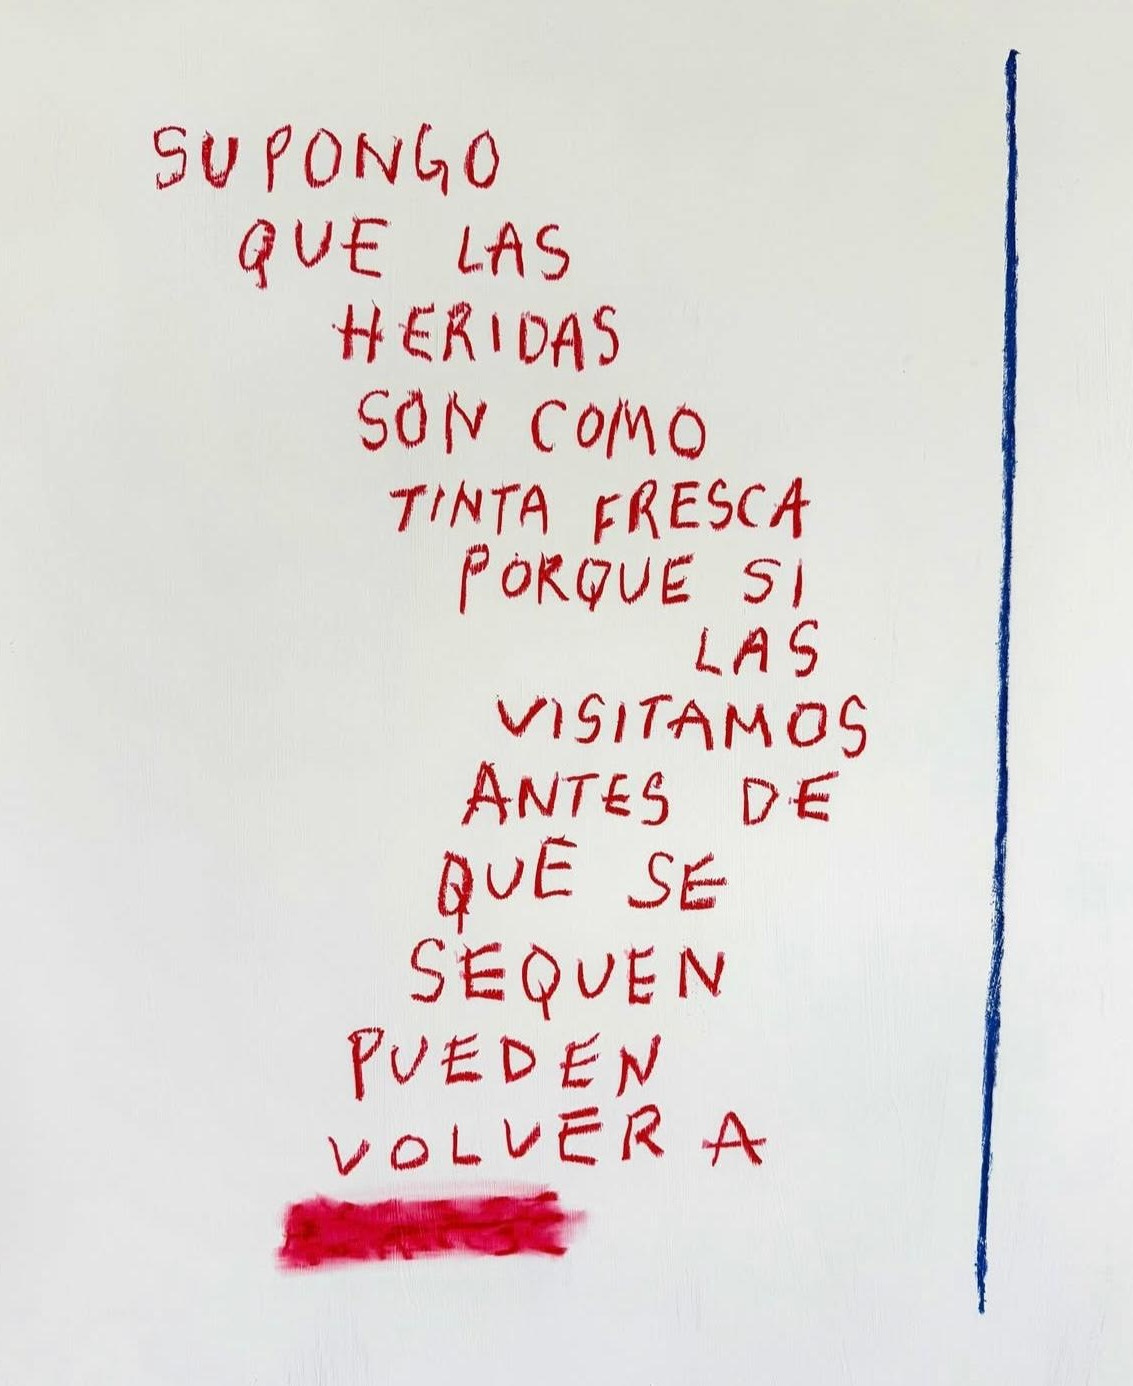 SUPONGO
QUE LAS
HERIDAS
SON COMO
TINTA FRESCA
PORQUE SI
LAS
VISITAMOS
ANTES DE
QUE SE
SEQUEN
PUEDEN
VOLVER A